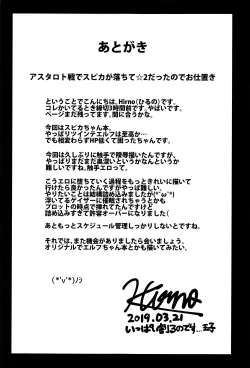 あとがき
アスタロト戦でスピカが落ちて☆2だったのでお仕置き
ということでこんにちは。Hirno(ひるの)です。
コレかいてるとき締切3時間前です。やばいです。
ページまだ残ってます。間に合うかな。
今回はスピカちゃん本。
やっぱりツインテエルフは至高か…
でも相変わらずHP低くて困ったちゃんです。
今回は久しぶりに触手で陵辱描いたんですが、
やっぱりまだまだ奥深いというかなんというか
難しいですね、触手エロって。
こうエロに堕ちていく過程をもっときれいに描いて
行けたら良かったんですがやっぱ難しい。
やりたいことは結構詰め込みましたが(*'ω'*)
浮いてるゲイザーに催眠されちゃうとかも
プロットの時点で挿れてたんですけど
詰め込みすぎて許容オーバーになりました(
あともっとスケジュール管理しっかりしないとですね。
それでは、また機会がありましたら会いましょう。
オリジナルでエルフちゃん本とかも描いてみたい。
(*'v'*)ﾉｼ
Hirno
2019.03.21